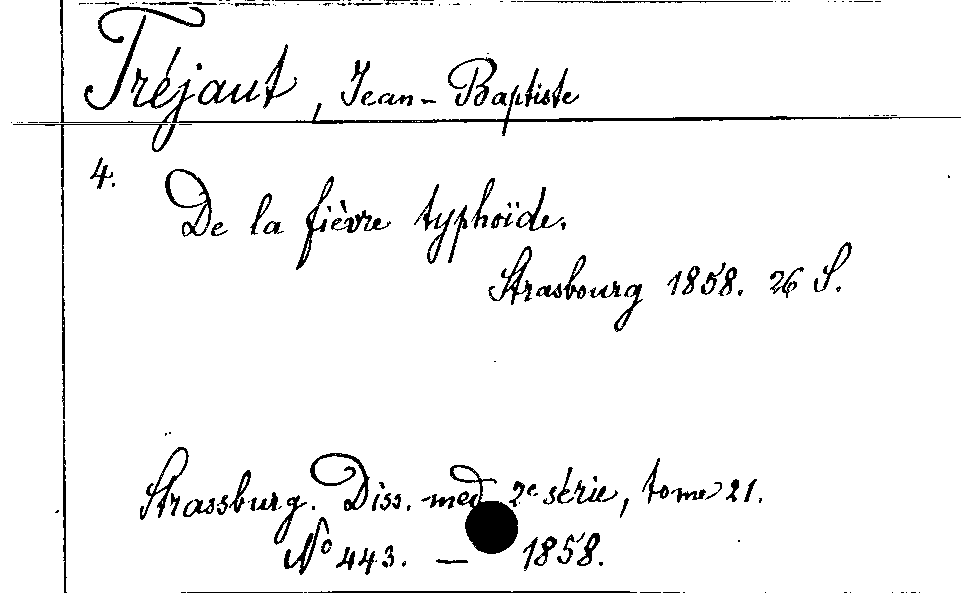 Tréjaut, Jean-Baptiste
4.
De la fièvre typhoïde.
Strasbourg 1858. 26 S.
Strassburg. Diss. med 2e série, tome 21.
No 443. — 1858.